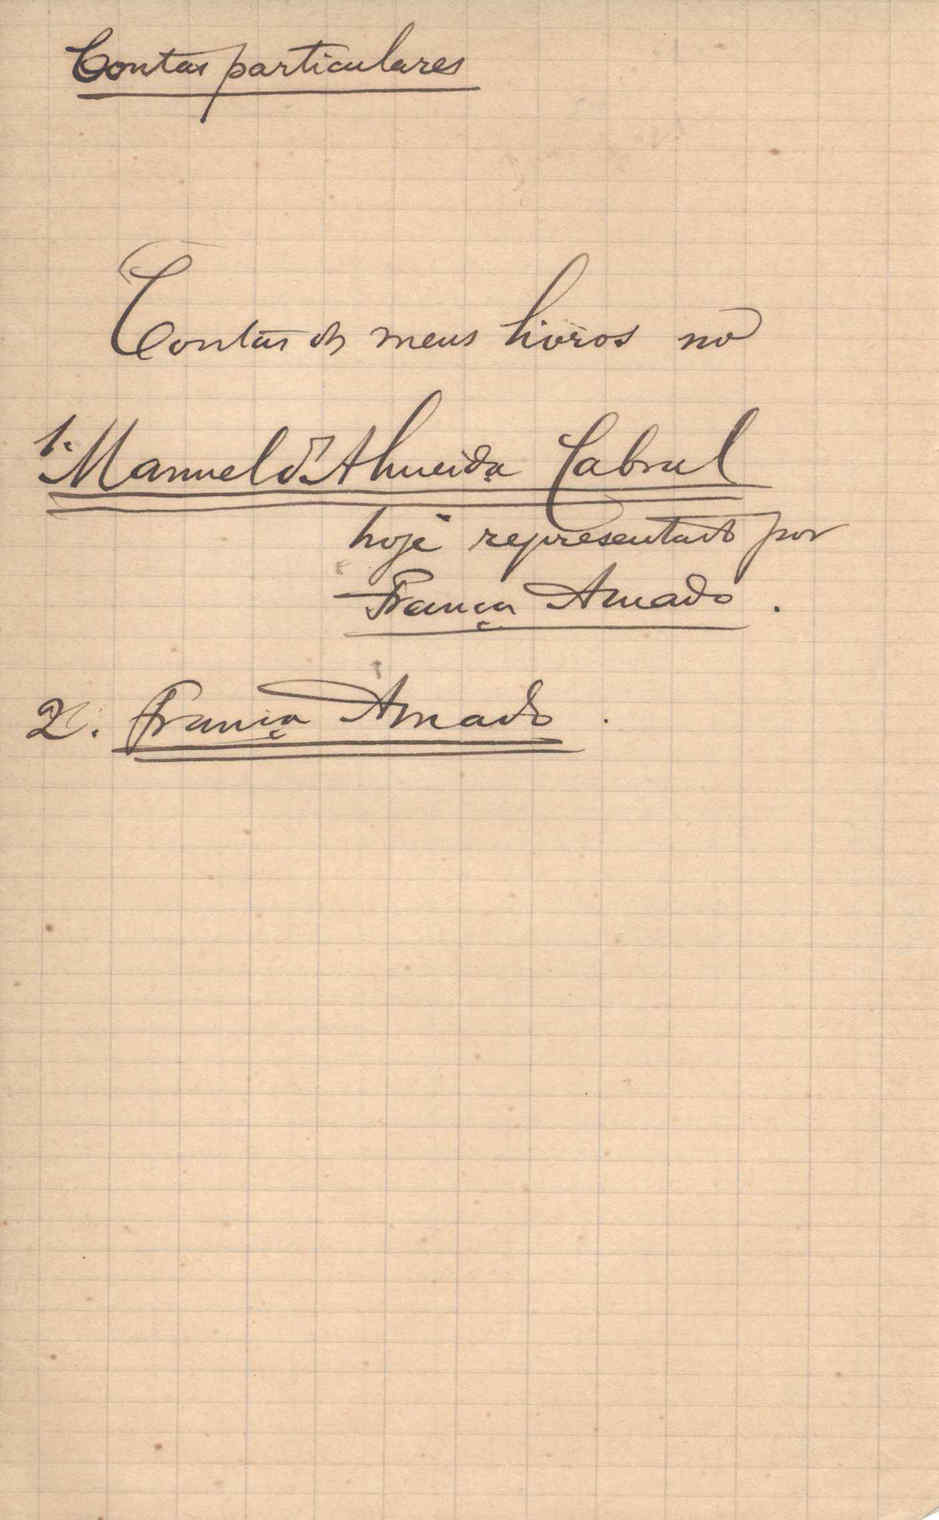 Contas particulares
Contas ds meus livros no
1.º Manuel d'Almeida Cabral
hoje representado por
França Amado.
2º. França Amado.